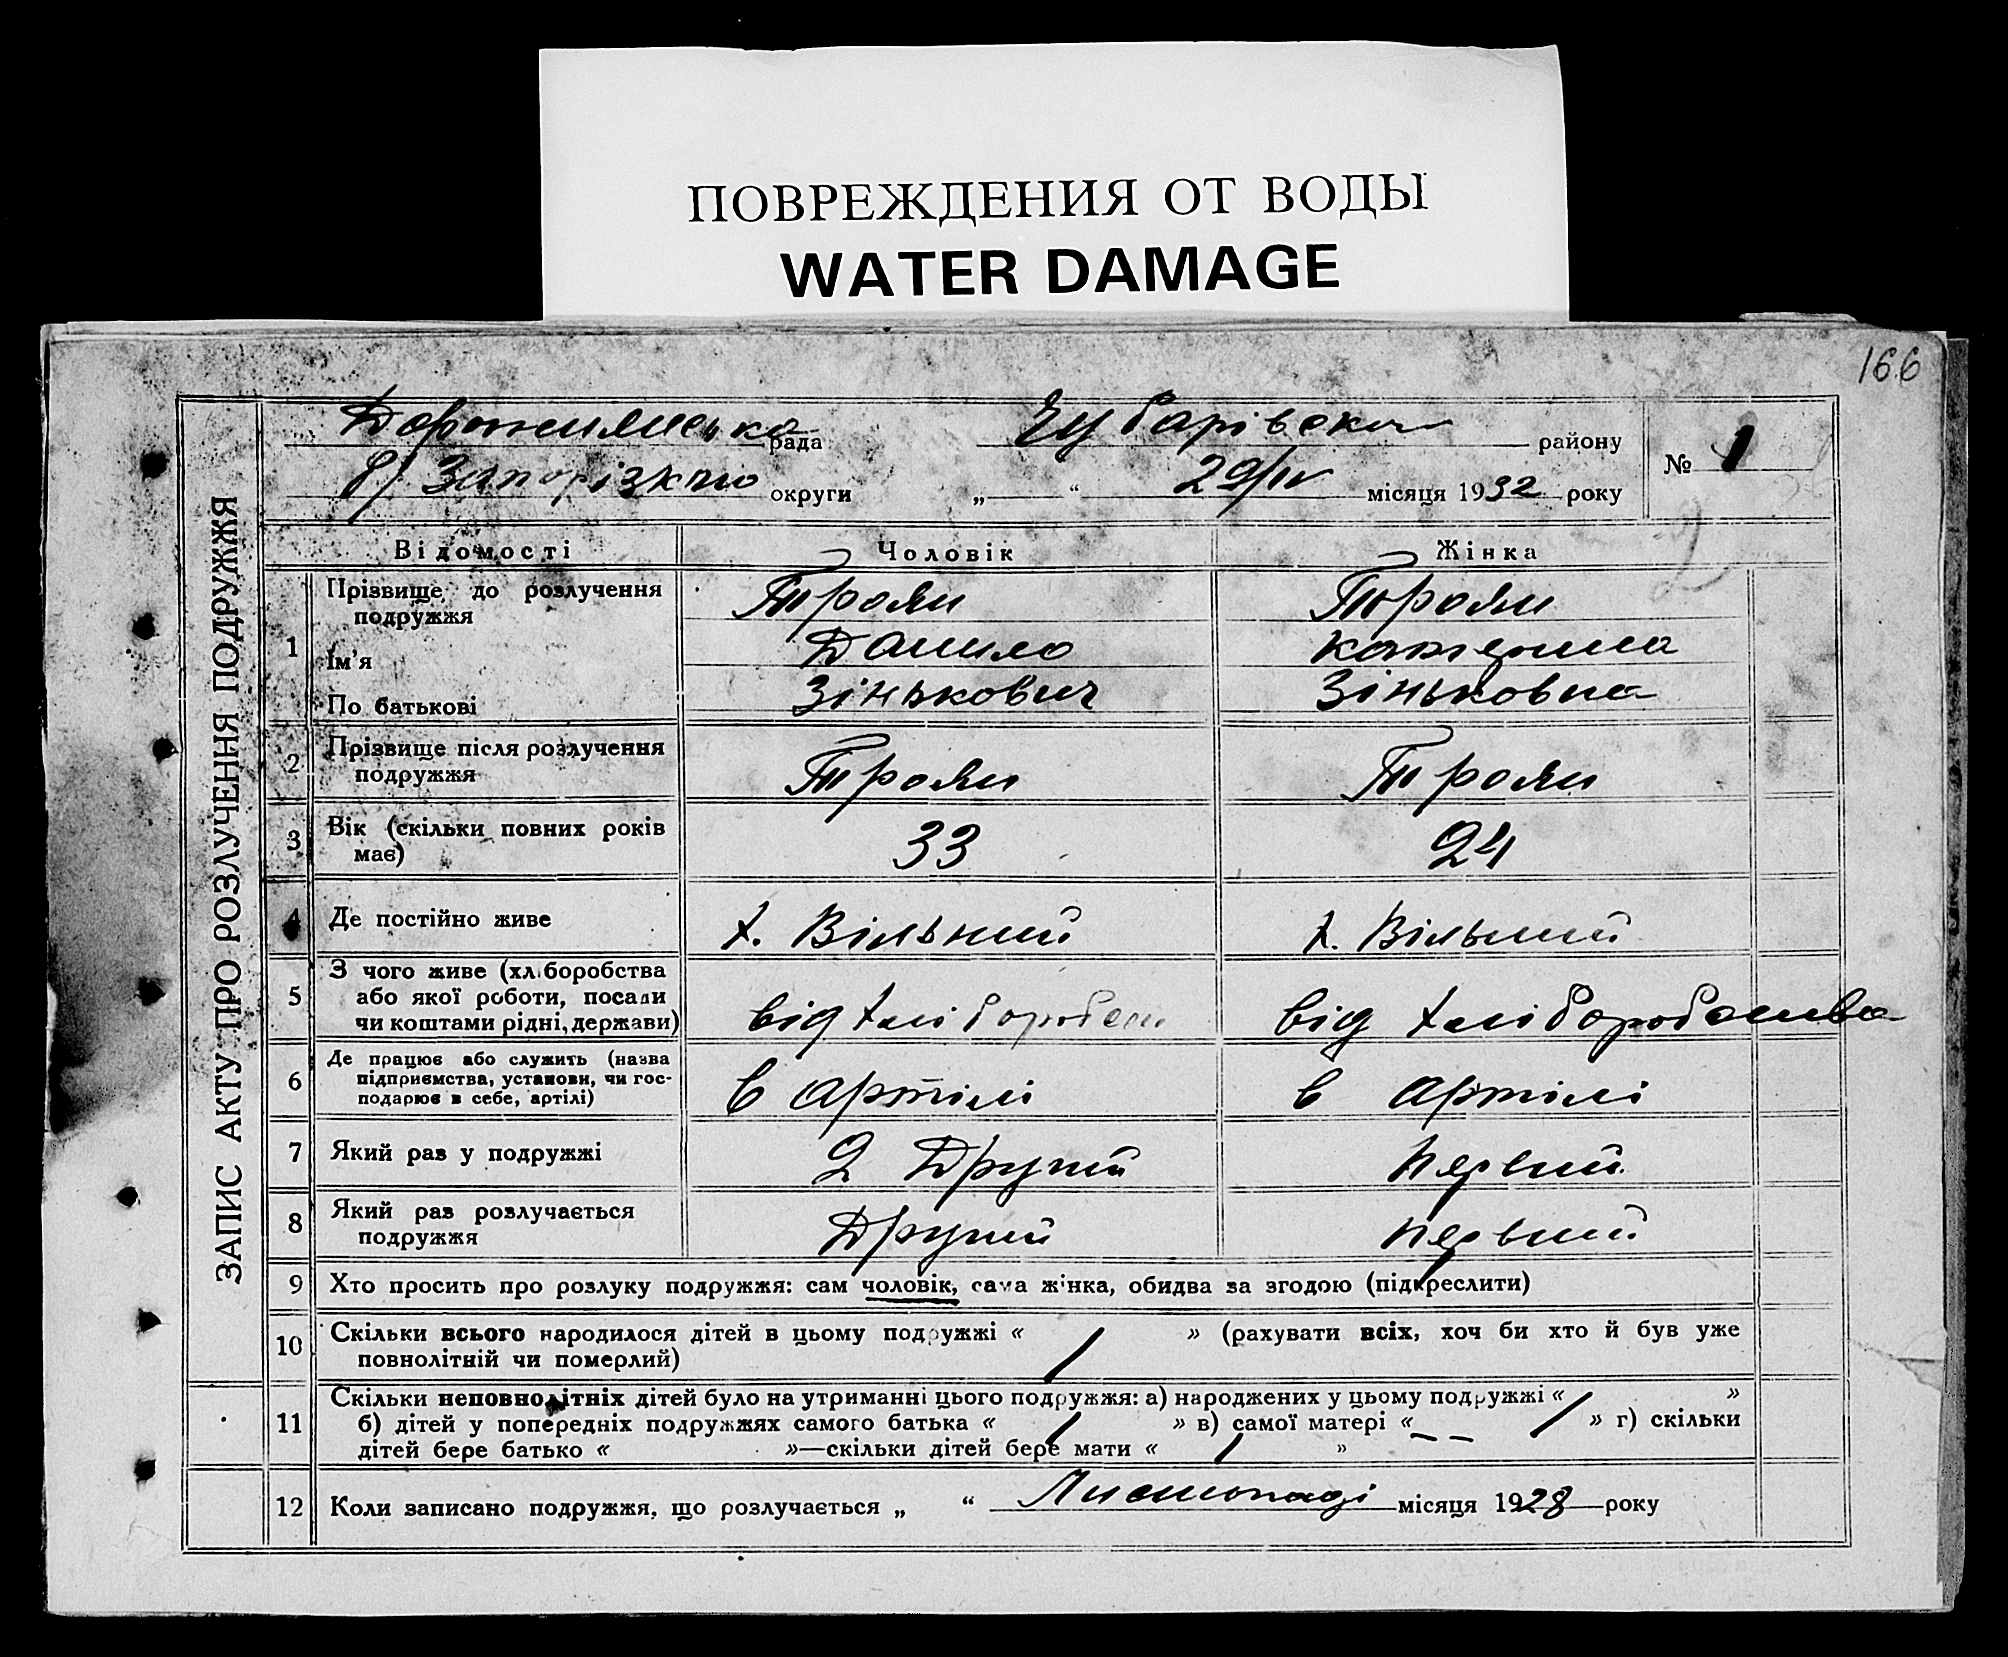 ПОВРЕЖДЕНИЯ ОТ ВОДЫ
WATER DAMAGE
166
ЗАПИС АКТУ ПРО РОЗЛУЧЕННЯ ПОДРУЖЖЯ
рада Чубарівськ району
№ 1
б/ Запорізького округи „ “ 29/IV місяця 1932 року
Відомості Чоловік Жінка
1 Прізвище до розлучення подружжя Троян Троян
Ім'я Данило Катерина
По батькові Зінькович Зіньковна
2 Прізвище після розлучення подружжя Троян Троян
3 Вік (скільки повних років має) 33 24
4 Де постійно живе х. Вільний х. Вільний
5 З чого живе (хліборобства
або якої роботи, посади
чи коштами рідні, держави) від хліборобст від хліборобства
6 Де працює або служить (назва
підприємства, установи, чи гос-
подарює в себе, артілі) в артілі в артілі
7 Який раз у подружжі 2 Другий первий
8 Який раз розлучається
подружжя Другий первий
9 Хто просить про розлуку подружжя: сам чоловік, сама жінка, обидва за згодою (підкреслити)
10 Скільки всього народилося дітей в цьому подружжі « / » (рахувати всіх, хоч би хто й був уже
повнолітній чи померлий)
11 Скільки неповнолітніх дітей було на утриманні цього подружжя: а) народжених у цьому подружжі « / »
б) дітей у попередніх подружжях самого батька « / » в) самої матері « — — / » г) скільки
дітей бере батько « »—скільки дітей бере мати « / »
12 Коли записано подружжя, що розлучається „ “ Листопаді місяця 1928 року